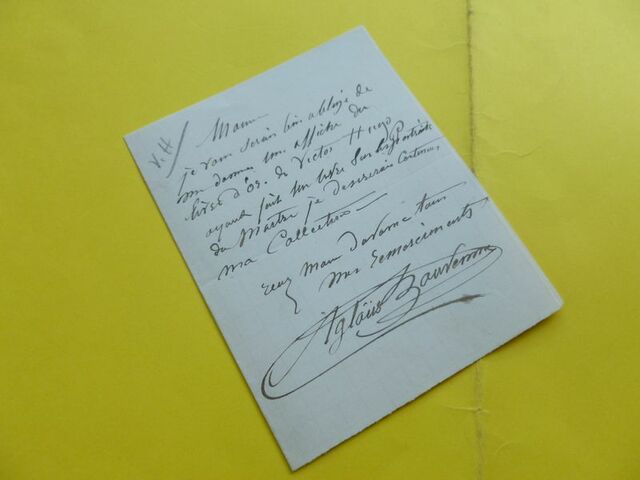 V. H
Monsr
je vous serais bien obligé de
me donner une affiche du
livre d'or de Victor Hugo
ayant fait un livre sur les Portraits
du Maître je desirerais continuer
ma Collection
Monr d'avance tous
mes remerciements
Aglaüs Bouvenne